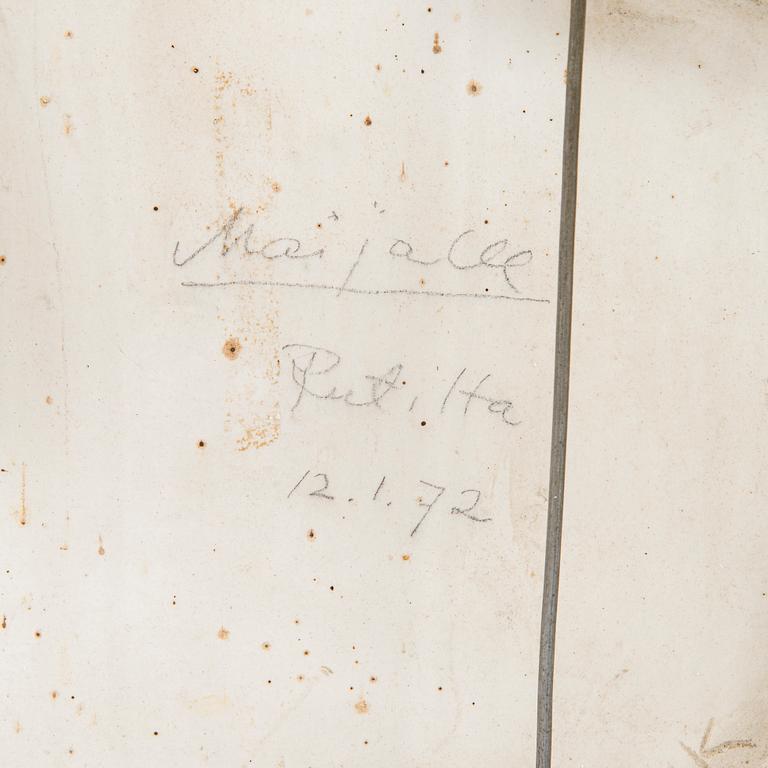 Maijalle
Rutilta
12.1.72